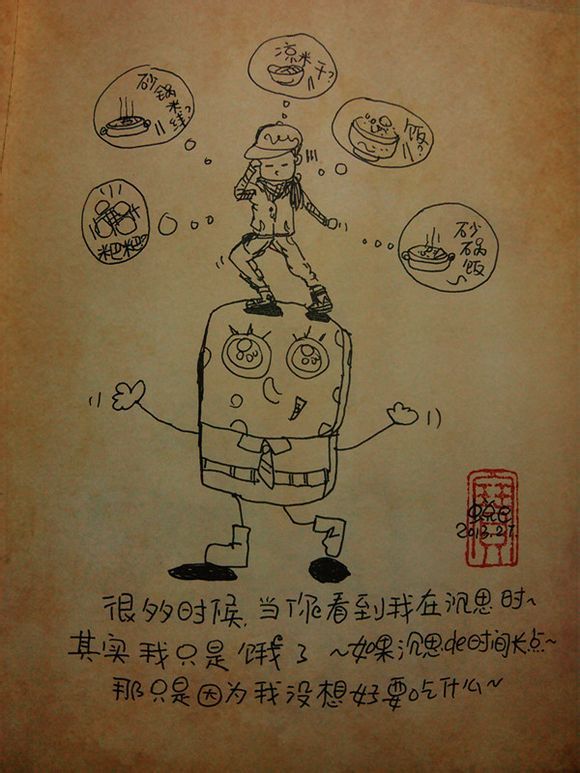 凉米干?
砂锅米线?
饭?
粑粑?
砂锅饭~
2013.2.7.
很多时候,当你看到我在沉思时~
其实我只是饿了~如果沉思de时间长点~
那只是因为我没想好要吃什么~